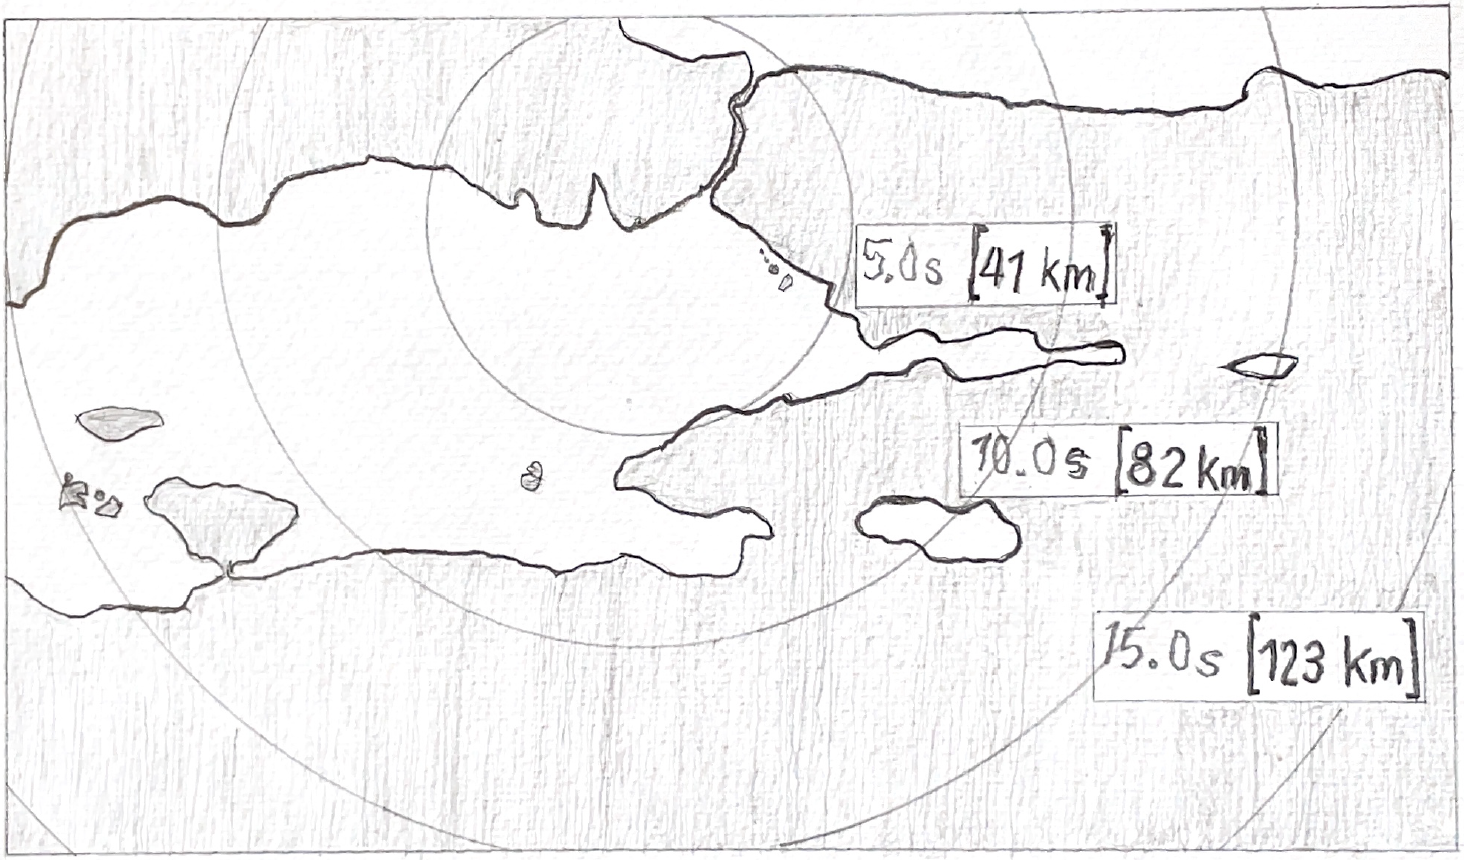 5.0s [41 km]
10.0s [82 km]
15.0s [123 km]